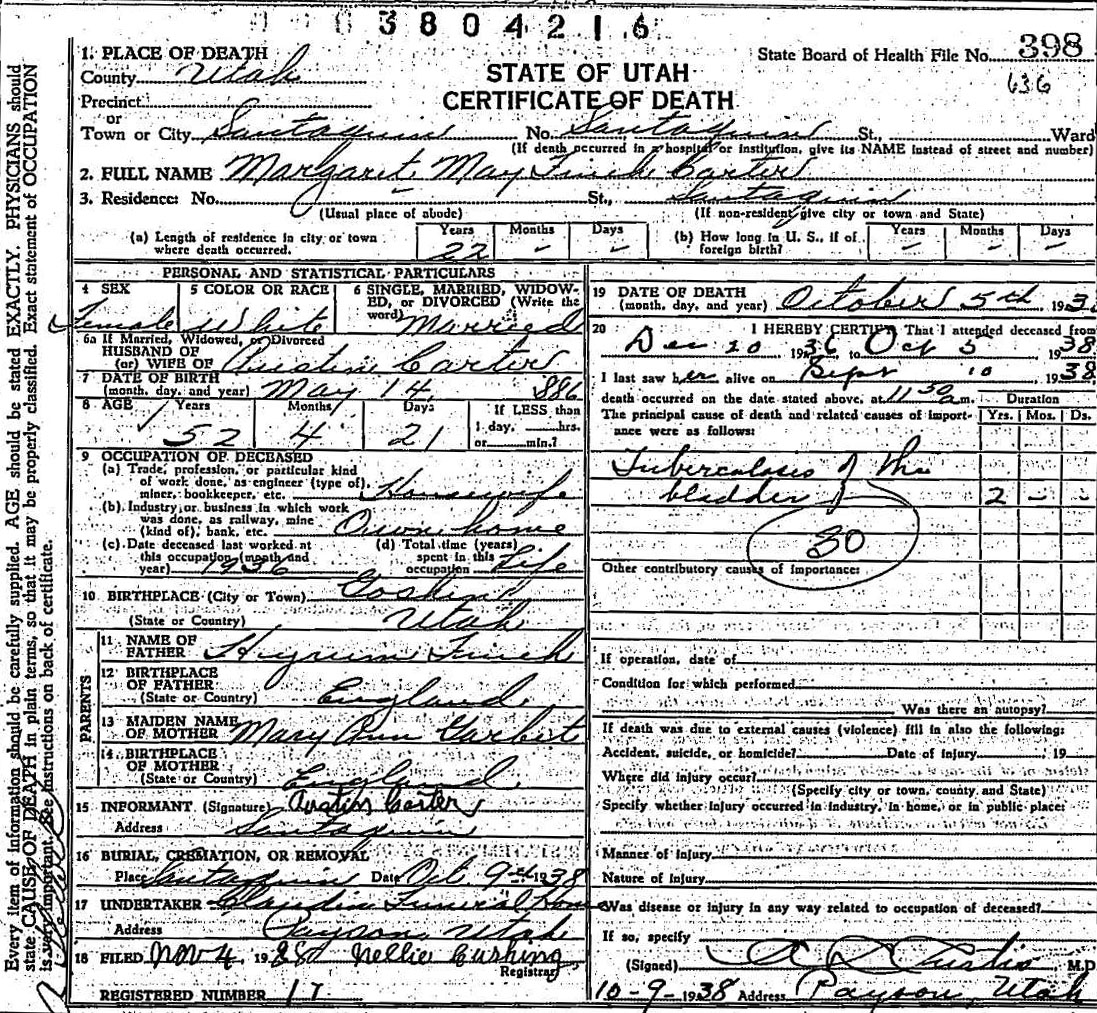 3804216
State Board of Health File No. 398
636
STATE OF UTAH
CERTIFICATE OF DEATH
1. PLACE OF DEATH
County Utah
Precinct
or
Town or City Santaquin No. Santaquin St., Ward
(If death occurred in a hospital or institution, give its NAME instead of street and number)
2. FULL NAME Margaret May Finch Carter
3. Residence: No. St., Santaquin
(Usual place of abode) (If non-resident give city or town and State)
(a) Length of residence in city or town where death occurred. Years 22 Months - Days -
(b) How long in U. S., if of foreign birth? Years - Months - Days -
PERSONAL AND STATISTICAL PARTICULARS
4 SEX Female
5 COLOR OR RACE White
6 SINGLE, MARRIED, WIDOWED, or DIVORCED (Write the word) Married
6a If Married, Widowed, or Divorced
HUSBAND OF
(or) WIFE OF Austin Carter
7 DATE OF BIRTH
(month, day, and year) May 14, 886
8 AGE Years 52 Months 4 Days 21
If LESS than
1 day, hrs.
or min.?
9 OCCUPATION OF DECEASED
(a) Trade, profession, or particular kind
of work done, as engineer (type of),
miner, bookkeeper, etc. Housewife
(b) Industry or business in which work
was done, as railway, mine
(kind of), bank, etc. Own home
(c) Date deceased last worked at
this occupation (month and
year) 1936
(d) Total time (years)
spent in this
occupation Life
10 BIRTHPLACE (City or Town) Goshen
(State or Country) Utah
PARENTS
11 NAME OF
FATHER Hyrum Finch
12 BIRTHPLACE
OF FATHER
(State or Country) England
13 MAIDEN NAME
OF MOTHER Mary Ann Garbett
14 BIRTHPLACE
OF MOTHER
(State or Country) England
15 INFORMANT (Signature) Austin Carter
Address Santaquin
16 BURIAL, CREMATION, OR REMOVAL
Place Santaquin Date Oct. 9 1938
17 UNDERTAKER Claudin Funeral Home
Address Payson, Utah
18 FILED Nov 4, 1938 Nellie Cushing
Registrar
REGISTERED NUMBER 17
19 DATE OF DEATH
(month, day, and year) October 5th 193
20 I HEREBY CERTIFY That I attended deceased from
Dec 20 1936 to Oct 5 1938
I last saw her alive on Sept 10 1938
death occurred on the date stated above, at 11 30 a m.
Duration
The principal cause of death and related causes of importance were as follows:
Yrs. Mos. Ds.
Tuberculoses of the
bladder 2 - -
30
Other contributory causes of importance:
If operation, date of
Condition for which performed
Was there an autopsy?
If death was due to external causes (violence) fill in also the following:
Accident, suicide, or homicide? Date of injury 19
Where did injury occur?
(Specify city or town, county and State)
Specify whether injury occurred in industry, in home, or in public place:
Manner of injury
Nature of injury
Was disease or injury in any way related to occupation of deceased?
If so, specify
(Signed) Austin M.D.
10-9-1938 Address Payson, Utah
Every item of information should be carefully supplied. AGE should be stated EXACTLY. PHYSICIANS should
state CAUSE OF DEATH in plain terms, so that it may be properly classified. Exact statement of OCCUPATION
is very important. See instructions on back of certificate.